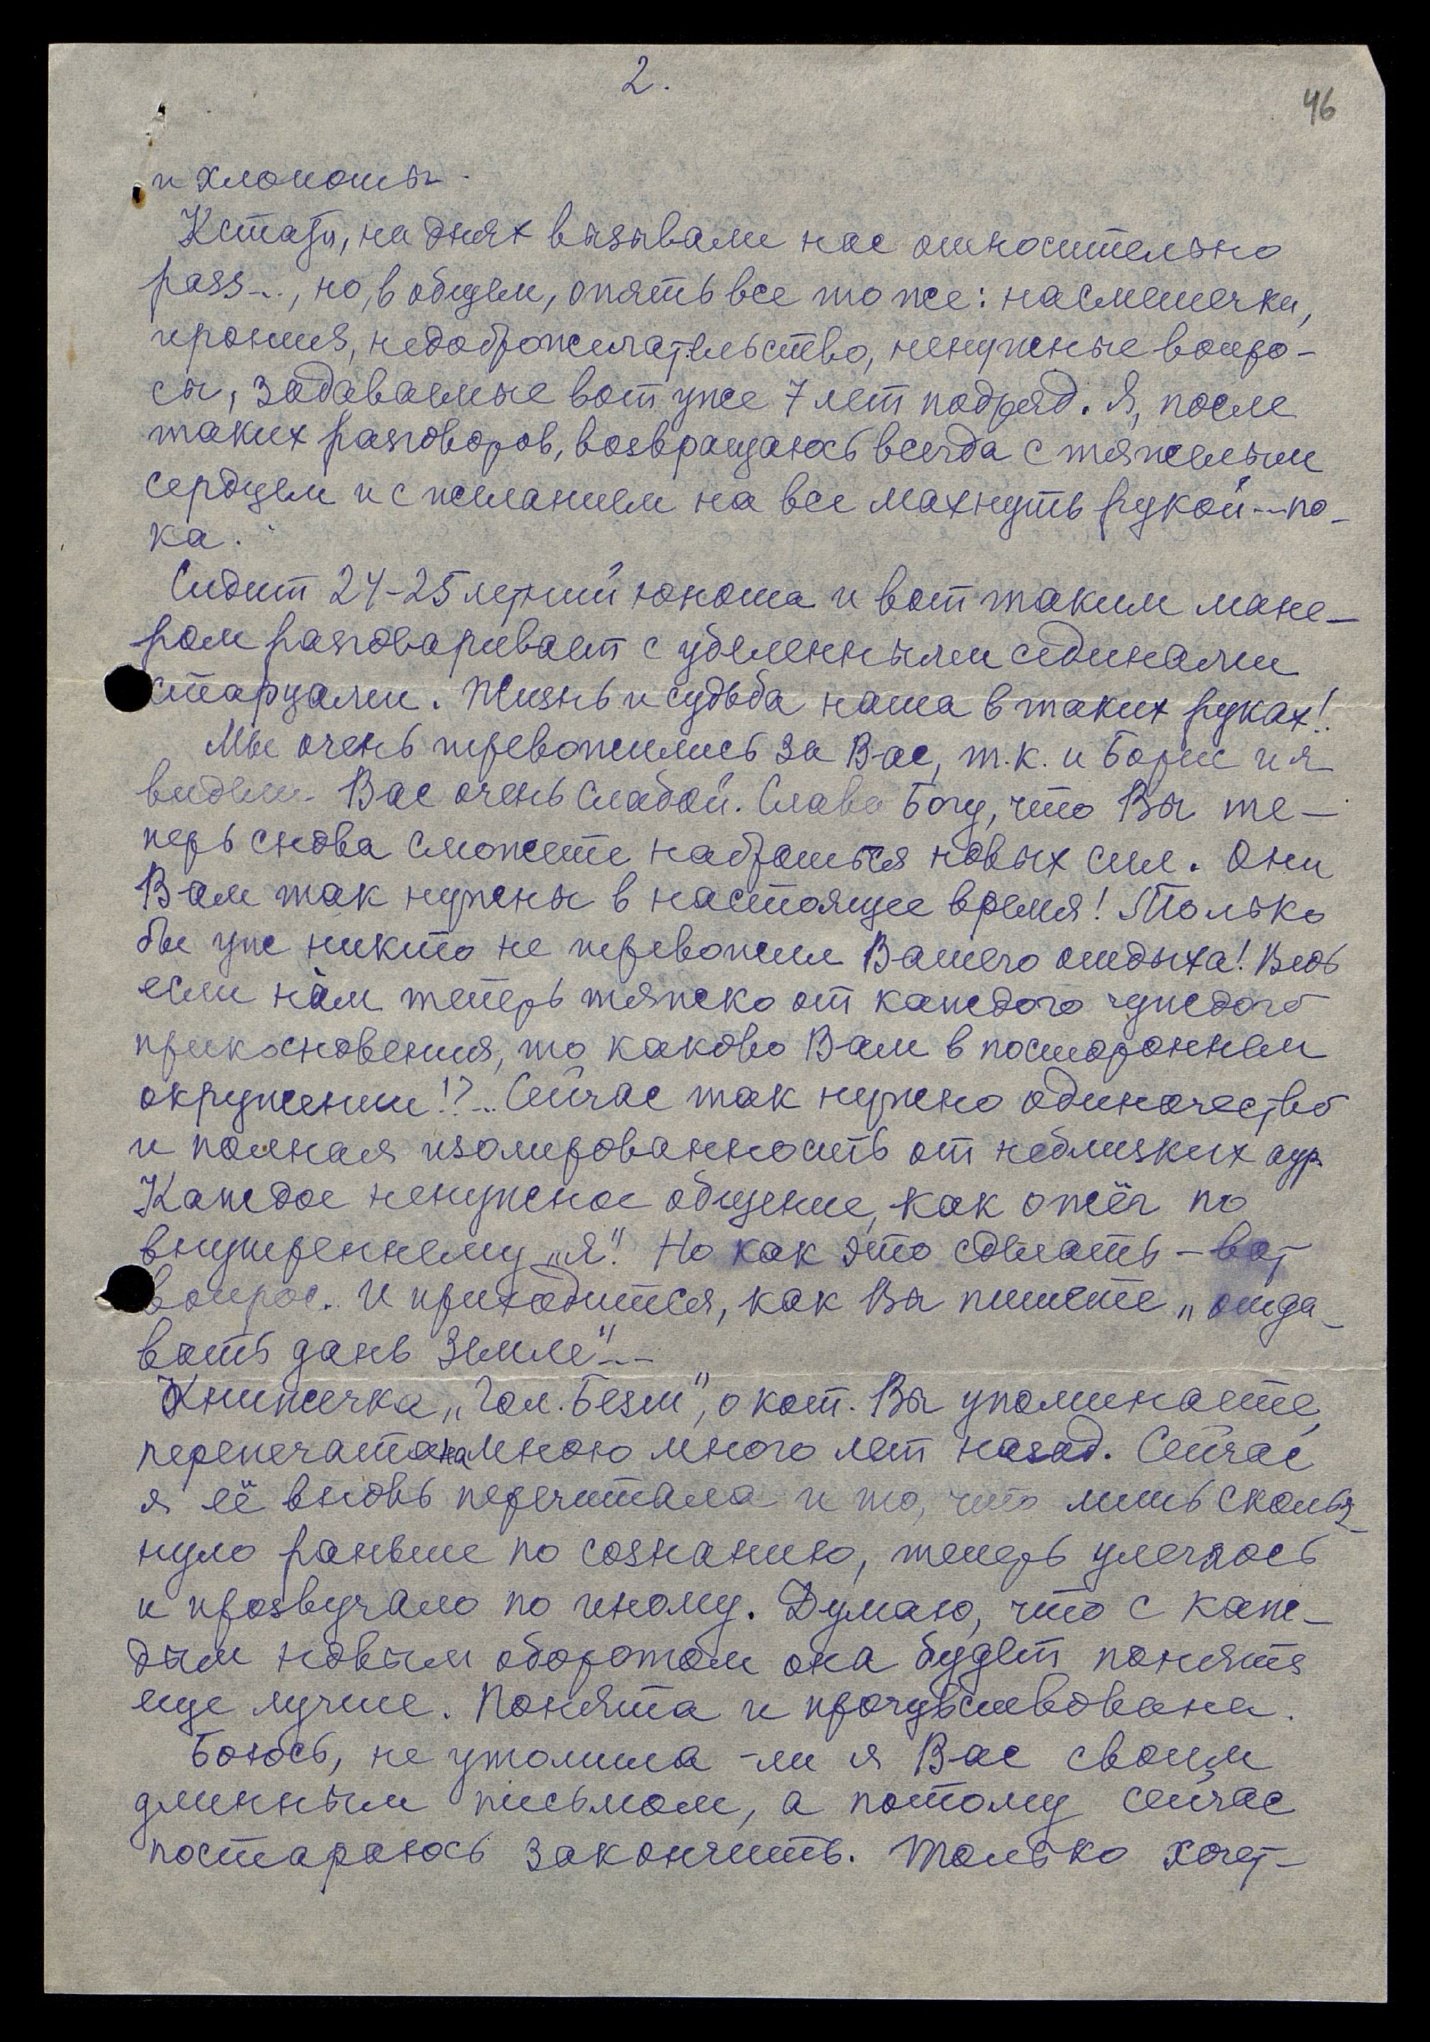 2.
46
и хлопоты.
Кстати, на днях вызывали нас относительно
pass..., но, в общем, опять все то же: насмешечки,
ирония, недоброжелательство, ненужные вопро-
сы, задаваемые вот уже 7 лет подряд. Я, после
таких разговоров, возвращаюсь всегда с тяжелым
сердцем и с желанием на все махнуть рукой... по-
ка.
Сидит 24-25 летний юноша и вот таким мане-
ром разговаривает с убеленными сединами
старцами. Жизнь и судьба наша в таких руках!..
Мы очень тревожились за Вас, т.к. и Борис и я
видели Вас очень слабой. Слава Богу, что Вы те-
перь снова сможете набраться новых сил. Они
Вам так нужны в настоящее время! Только
бы уж никто не тревожил Вашего отдыха! Ведь
если нам теперь тяжко от каждого чуждого
прикосновения, то каково Вам в постороннем
окружении!?... Сейчас так нужно одиночество
и полная изолированность от неблизких аур.
Каждое ненужное общение, как ожёг по
внутреннему „я". Но как это сделать – вот
вопрос. И приходится, как Вы пишете „отда-
вать дань Земле"...
Книжечка „Гол. Безм", о кот. Вы упоминаете,
перепечатана мною много лет назад. Сейчас
я её вновь перечитала и то, что лишь скольз-
нуло раньше по сознанию, теперь улеглось
и прозвучало по иному. Думаю, что с каж-
дым новым оборотом она будет понята
еще лучше. Понята и прочувствована.
Боюсь, не утомила-ли я Вас своим
длинным письмом, а потому сейчас
постараюсь закончить. Только хочет-